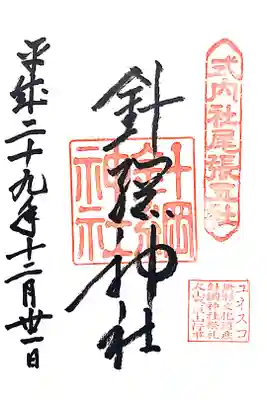 式内社尾張五社
ユネスコ
無形文化遺産
針綱神社祭礼
犬山祭の車山行事
針綱神社
針綱
神社
平成二十九年十二月廿一日